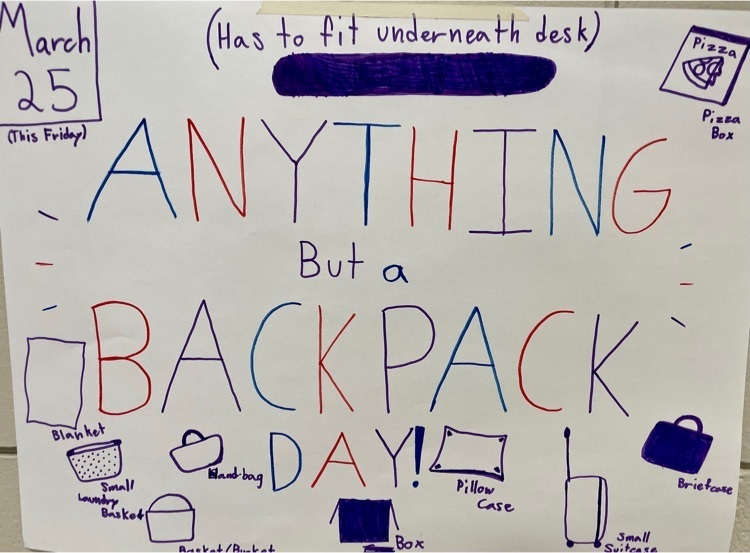 March
25
(This Friday)
(Has to fit underneath desk)
Pizza
Pizza
Box
ANYTHING
But a
BACKPACK
DAY!
Blanket
Small
Laundry
Basket
Handbag
Pillow
Case
Briefcase
Basket/Bucket
Box
Small
Suitcase